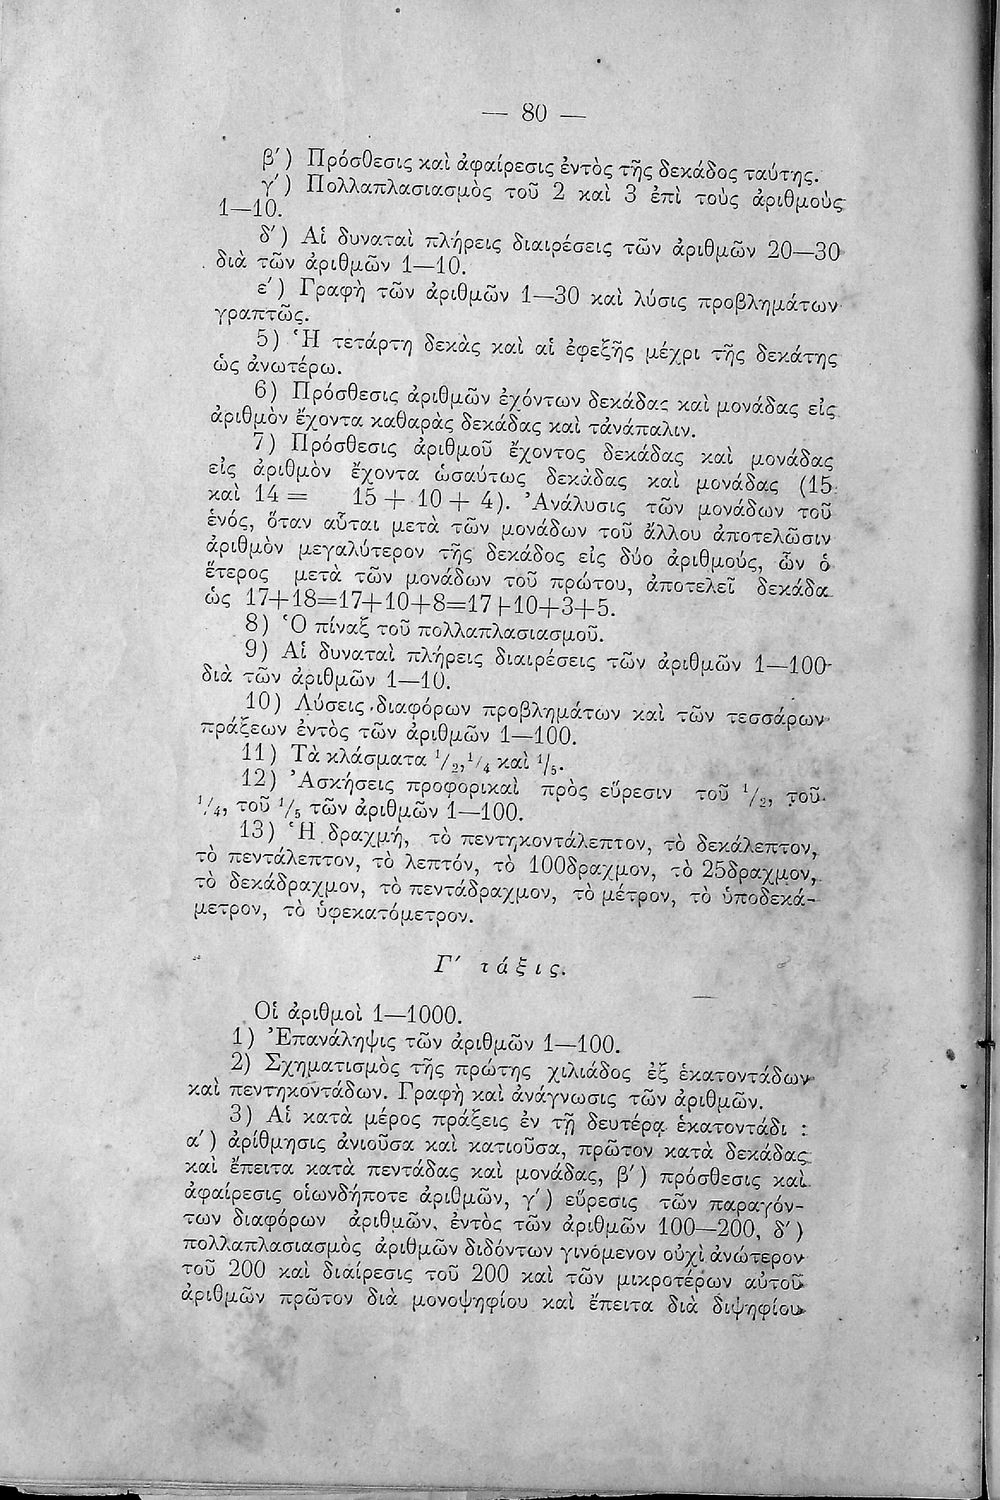 — 80 —
β′) Πρόσθεσις καὶ ἀφαίρεσις ἐντὸς τῆς δεκάδος ταύτης.
γ′) Πολλαπλασιασμὸς τοῦ 2 καὶ 3 ἐπὶ τοὺς ἀριθμοὺς
1—10.
δ′) Αἱ δυναταὶ πλήρεις διαιρέσεις τῶν ἀριθμῶν 20—30
διὰ τῶν ἀριθμῶν 1—10.
ε′) Γραφὴ τῶν ἀριθμῶν 1—30 καὶ λύσις προβλημάτων
γραπτῶς.
5) Ἡ τετάρτη δεκὰς καὶ αἱ ἐφεξῆς μέχρι τῆς δεκάτης
ὡς ἀνωτέρω.
6) Πρόσθεσις ἀριθμῶν ἐχόντων δεκάδας καὶ μονάδας εἰς
ἀριθμὸν ἔχοντα καθαρὰς δεκάδας καὶ τἀνάπαλιν.
7) Πρόσθεσις ἀριθμοῦ ἔχοντος δεκάδας καὶ μονάδας
εἰς ἀριθμὸν ἔχοντα ὡσαύτως δεκάδας καὶ μονάδας (15
καὶ 14 = 15 + 10 + 4). Ἀνάλυσις τῶν μονάδων τοῦ
ἑνός, ὅταν αὗται μετὰ τῶν μονάδων τοῦ ἄλλου ἀποτελῶσιν
ἀριθμὸν μεγαλύτερον τῆς δεκάδος εἰς δύο ἀριθμούς, ὧν ὁ
ἕτερος μετὰ τῶν μονάδων τοῦ πρώτου, ἀποτελεῖ δεκάδα
ὡς 17+18=17+10+8=17+10+3+5.
8) Ὁ πίναξ τοῦ πολλαπλασιασμοῦ.
9) Αἱ δυναταὶ πλήρεις διαιρέσεις τῶν ἀριθμῶν 1—100
διὰ τῶν ἀριθμῶν 1—10.
10) Λύσεις διαφόρων προβλημάτων καὶ τῶν τεσσάρων
πράξεων ἐντὸς τῶν ἀριθμῶν 1—100.
11) Τὰ κλάσματα 1/2, 1/4 καὶ 1/5.
12) Ἀσκήσεις προφορικαὶ πρὸς εὕρεσιν τοῦ 1/2, τοῦ
1/4, τοῦ 1/5 τῶν ἀριθμῶν 1—100.
13) Ἡ δραχμή, τὸ πεντηκοντάλεπτον, τὸ δεκάλεπτον,
τὸ πεντάλεπτον, τὸ λεπτόν, τὸ 100δραχμον, τὸ 25δραχμον,
τὸ δεκάδραχμον, τὸ πεντάδραχμον, τὸ μέτρον, τὸ ὑποδεκά-
μετρον, τὸ ὑφεκατόμετρον.
Γ′ τάξις.
Οἱ ἀριθμοὶ 1—1000.
1) Ἐπανάληψις τῶν ἀριθμῶν 1—100.
2) Σχηματισμὸς τῆς πρώτης χιλιάδος ἐξ ἑκατοντάδων
καὶ πεντηκοντάδων. Γραφὴ καὶ ἀνάγνωσις τῶν ἀριθμῶν.
3) Αἱ κατὰ μέρος πράξεις ἐν τῇ δευτέρᾳ ἑκατοντάδι :
α′) ἀρίθμησις ἀνιοῦσα καὶ κατιοῦσα, πρῶτον κατὰ δεκάδας
καὶ ἔπειτα κατὰ πεντάδας καὶ μονάδας, β′) πρόσθεσις καὶ
ἀφαίρεσις οἱωνδήποτε ἀριθμῶν, γ′) εὕρεσις τῶν παραγόν-
των διαφόρων ἀριθμῶν, ἐντὸς τῶν ἀριθμῶν 100—200, δ′)
πολλαπλασιασμὸς ἀριθμῶν διδόντων γινόμενον οὐχὶ ἀνώτερον
τοῦ 200 καὶ διαίρεσις τοῦ 200 καὶ τῶν μικροτέρων αὐτοῦ
ἀριθμῶν πρῶτον διὰ μονοψηφίου καὶ ἔπειτα διὰ διψηφίου